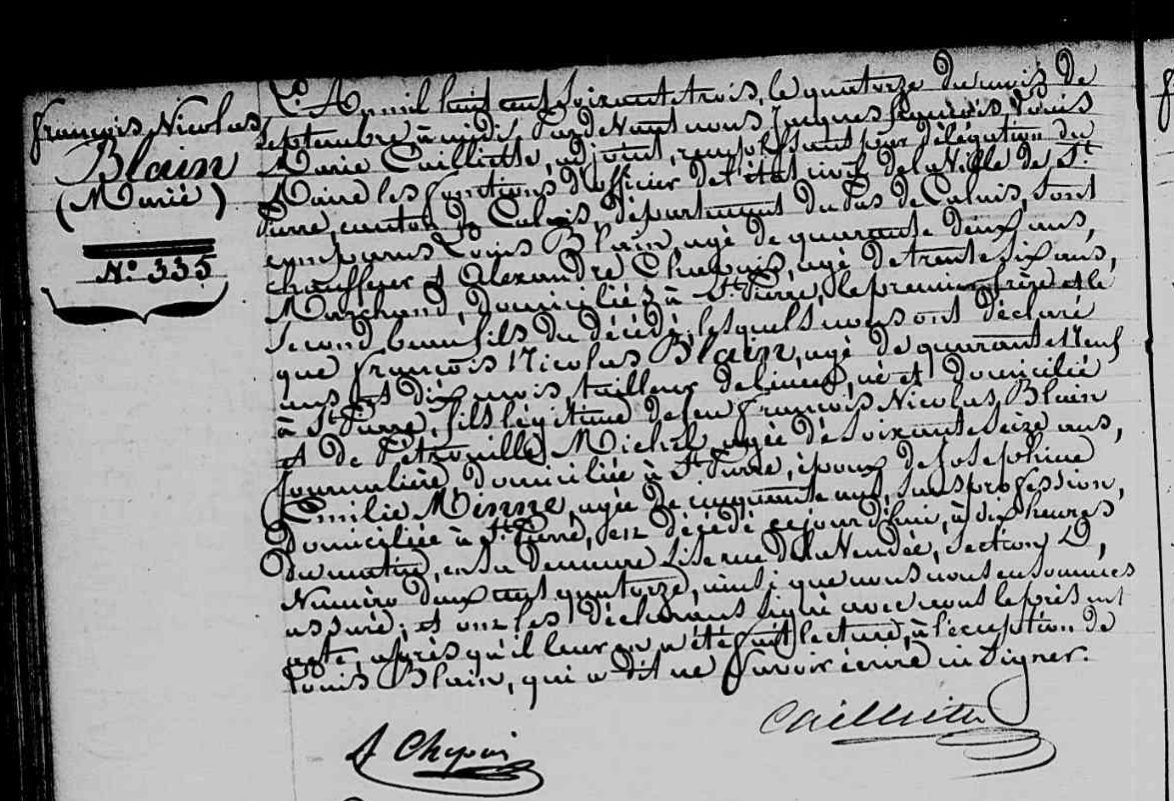 François Nicolas
Blain
(Marié)
N° 335
L'An mil huit cent soixante trois, le quatorze du mois de
Septembre, à midi, Pardevant nous Jacques François Louis
Marie Cailliette, adjoint, remplissant par délégation du
Maire les fonctions d'officier de l'état civil de la Ville de St
Pierre, canton de Calais, département du Pas de Calais, sont
comparus Louis Blain, agé de quarante deux ans,
chauffeur et Alexandre Chepuis, agé de trente six ans,
Marchand, domiciliés à St Pierre, le premier frère et le
second beau fils du décédé, lesquels nous ont déclaré
que François Nicolas Blain, agé de quarante neuf
ans et dix mois, tailleur de limes, né et domicilié
à St Pierre, fils légitime de feu François Nicolas Blain
et de Pétronille Michel, agée de soixante seize ans,
journalière domiciliée à St Pierre, époux de Joséphine
Emilie Minne, agée de cinquante ans, sans profession,
domiciliée à St Pierre, est décédé cejourd'hui, à dix heures
du matin, en sa demeure sise rue de la Vendée, section D,
Numéro deux cent quatorze, ainsi que nous nous en sommes
assuré; et ont les déclarants signé avec nous le présent
acte, après qu'il leur en a été fait lecture, à l'exception de
Louis Blain, qui a dit ne savoir écrire ni signer.
A Chepuis
Cailliette